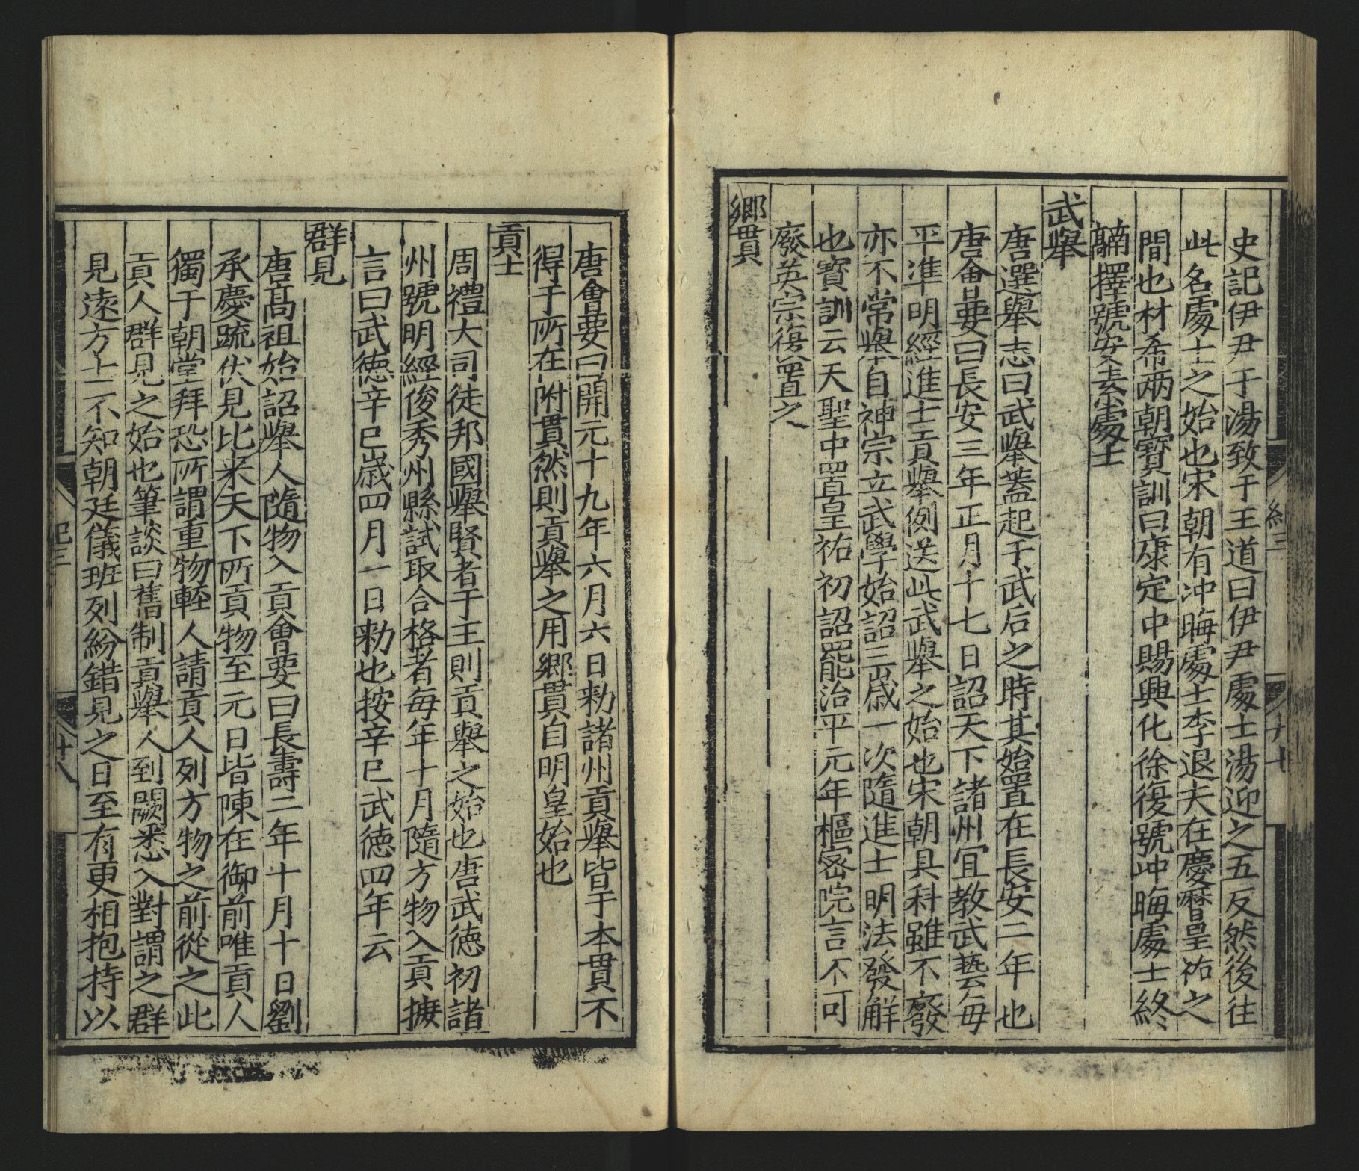 史記伊尹于湯致于王道曰伊尹處士湯迎之五反然後往
此名處士之始也宋朝有冲晦處士李退夫在慶曆皇祐之
間也材希兩朝寳訓曰康定中賜興化徐復號冲晦處士終
擇號安素處士
武舉
唐選舉志曰武舉蓋起于武后之時其始置在長安二年也
唐會要曰長安三年正月十七日詔天下諸州宜教武藝每
平準明經進士貢舉例送此武舉之始也宋朝具科雖不廢
亦不常舉自神宗立武學始詔三歲一次隨進士明法發解
也寳訓云天聖中置皇祐初詔罷治平元年樞密院言不可
廢英宗復置之
鄉貫
唐會要曰開元十九年六月六日勑諸州貢舉皆于本貫不
得于所在附貫然則貢舉之用鄉貫自明皇始也
貢士
周禮大司徒邦國舉賢者于王則貢舉之始也唐武德初諸
州號明經俊秀州縣試取合格者每年十月隨方物入貢摭
言曰武德辛巳歲四月一日勑也按辛巳武德四年云
群見
唐髙祖始詔舉人隨物入貢會要曰長壽二年十月十日劉
承慶䟽伏見比来天下所貢物至元日皆陳在御前唯貢人
獨于朝堂拜恐所謂重物輕人請貢人列方物之前從之此
貢人群見之始也筆談曰舊制貢舉人到闕悉入對謂之群
見遠方士不知朝廷儀班列紛錯見之日至有更相抱持以
紀三
十七
紀三
十八